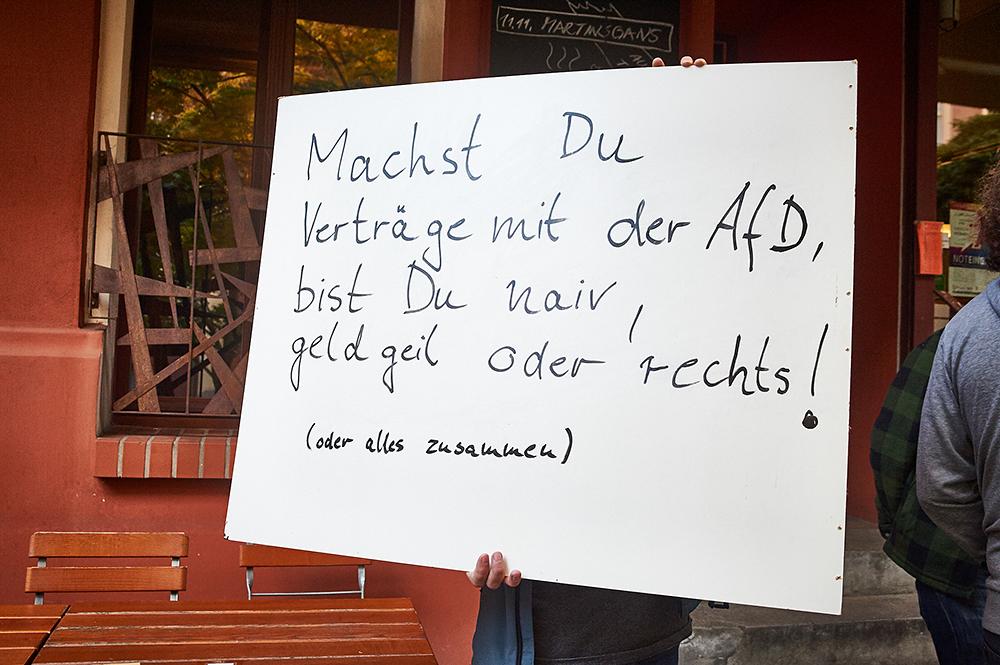 11.11. MARTINSGANS
Machst Du
Verträge mit der AfD,
bist Du naiv,
geldgeil oder rechts!
(oder alles zusammen)
NOTEINS